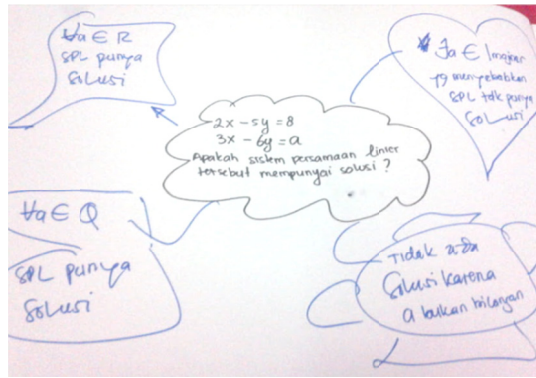 ∀a ∈ R
SPL punya
Solusi
∃a ∈ Imajiner
yg menyebabkan
SPL tdk punya
Solusi
2x - 5y = 8
3x - 6y = a
Apakah sistem persamaan linier
tersebut mempunyai solusi ?
∀a ∈ Q
SPL punya
Solusi
Tidak ada
Solusi karena
a bukan bilangan